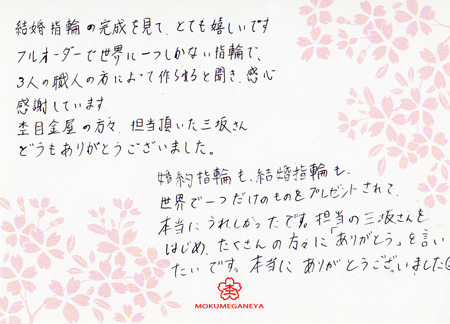 結婚指輪の完成を見て、とても嬉しいです
フルオーダーで世界に一つしかない指輪で、
3人の職人の方によって作られると聞き、感心
感謝しています
杢目金屋の方々、担当頂いた三坂さん
どうもありがとうございました。
婚約指輪も、結婚指輪も、
世界で一つだけのものをプレゼントされて、
本当にうれしかったです。担当の三坂さんを
はじめ、たくさんの方々に「ありがとう」を言い
たいです。本当にありがとうございました
MOKUMEGANEYA